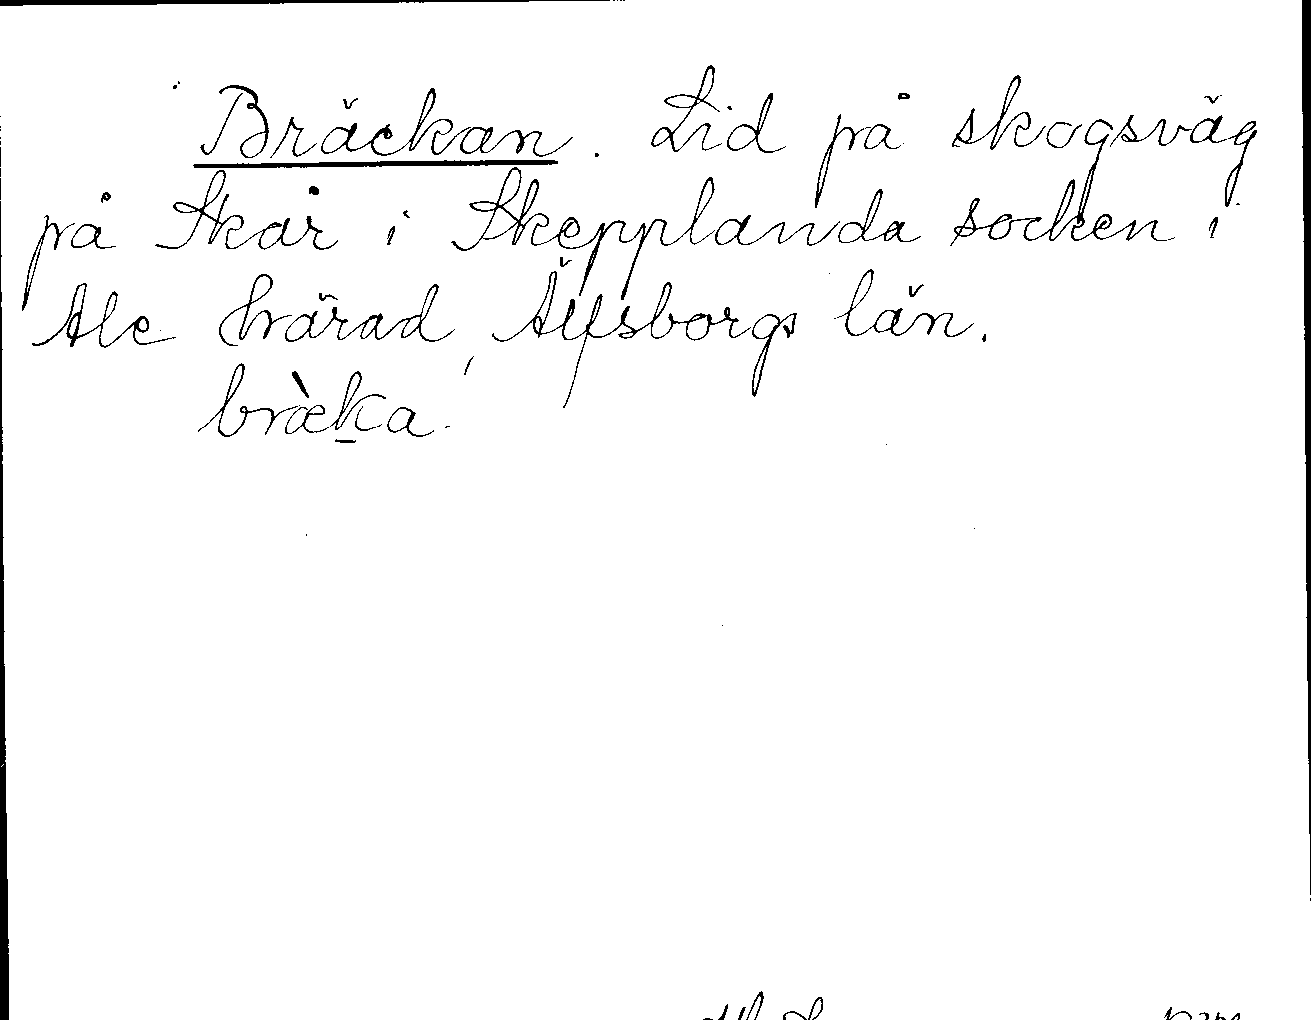 Bräckan. Lid på skogsväg
på Skår i Skepplanda socken i
Ale härad, Älfsborgs län.
bræ̀ḵa.